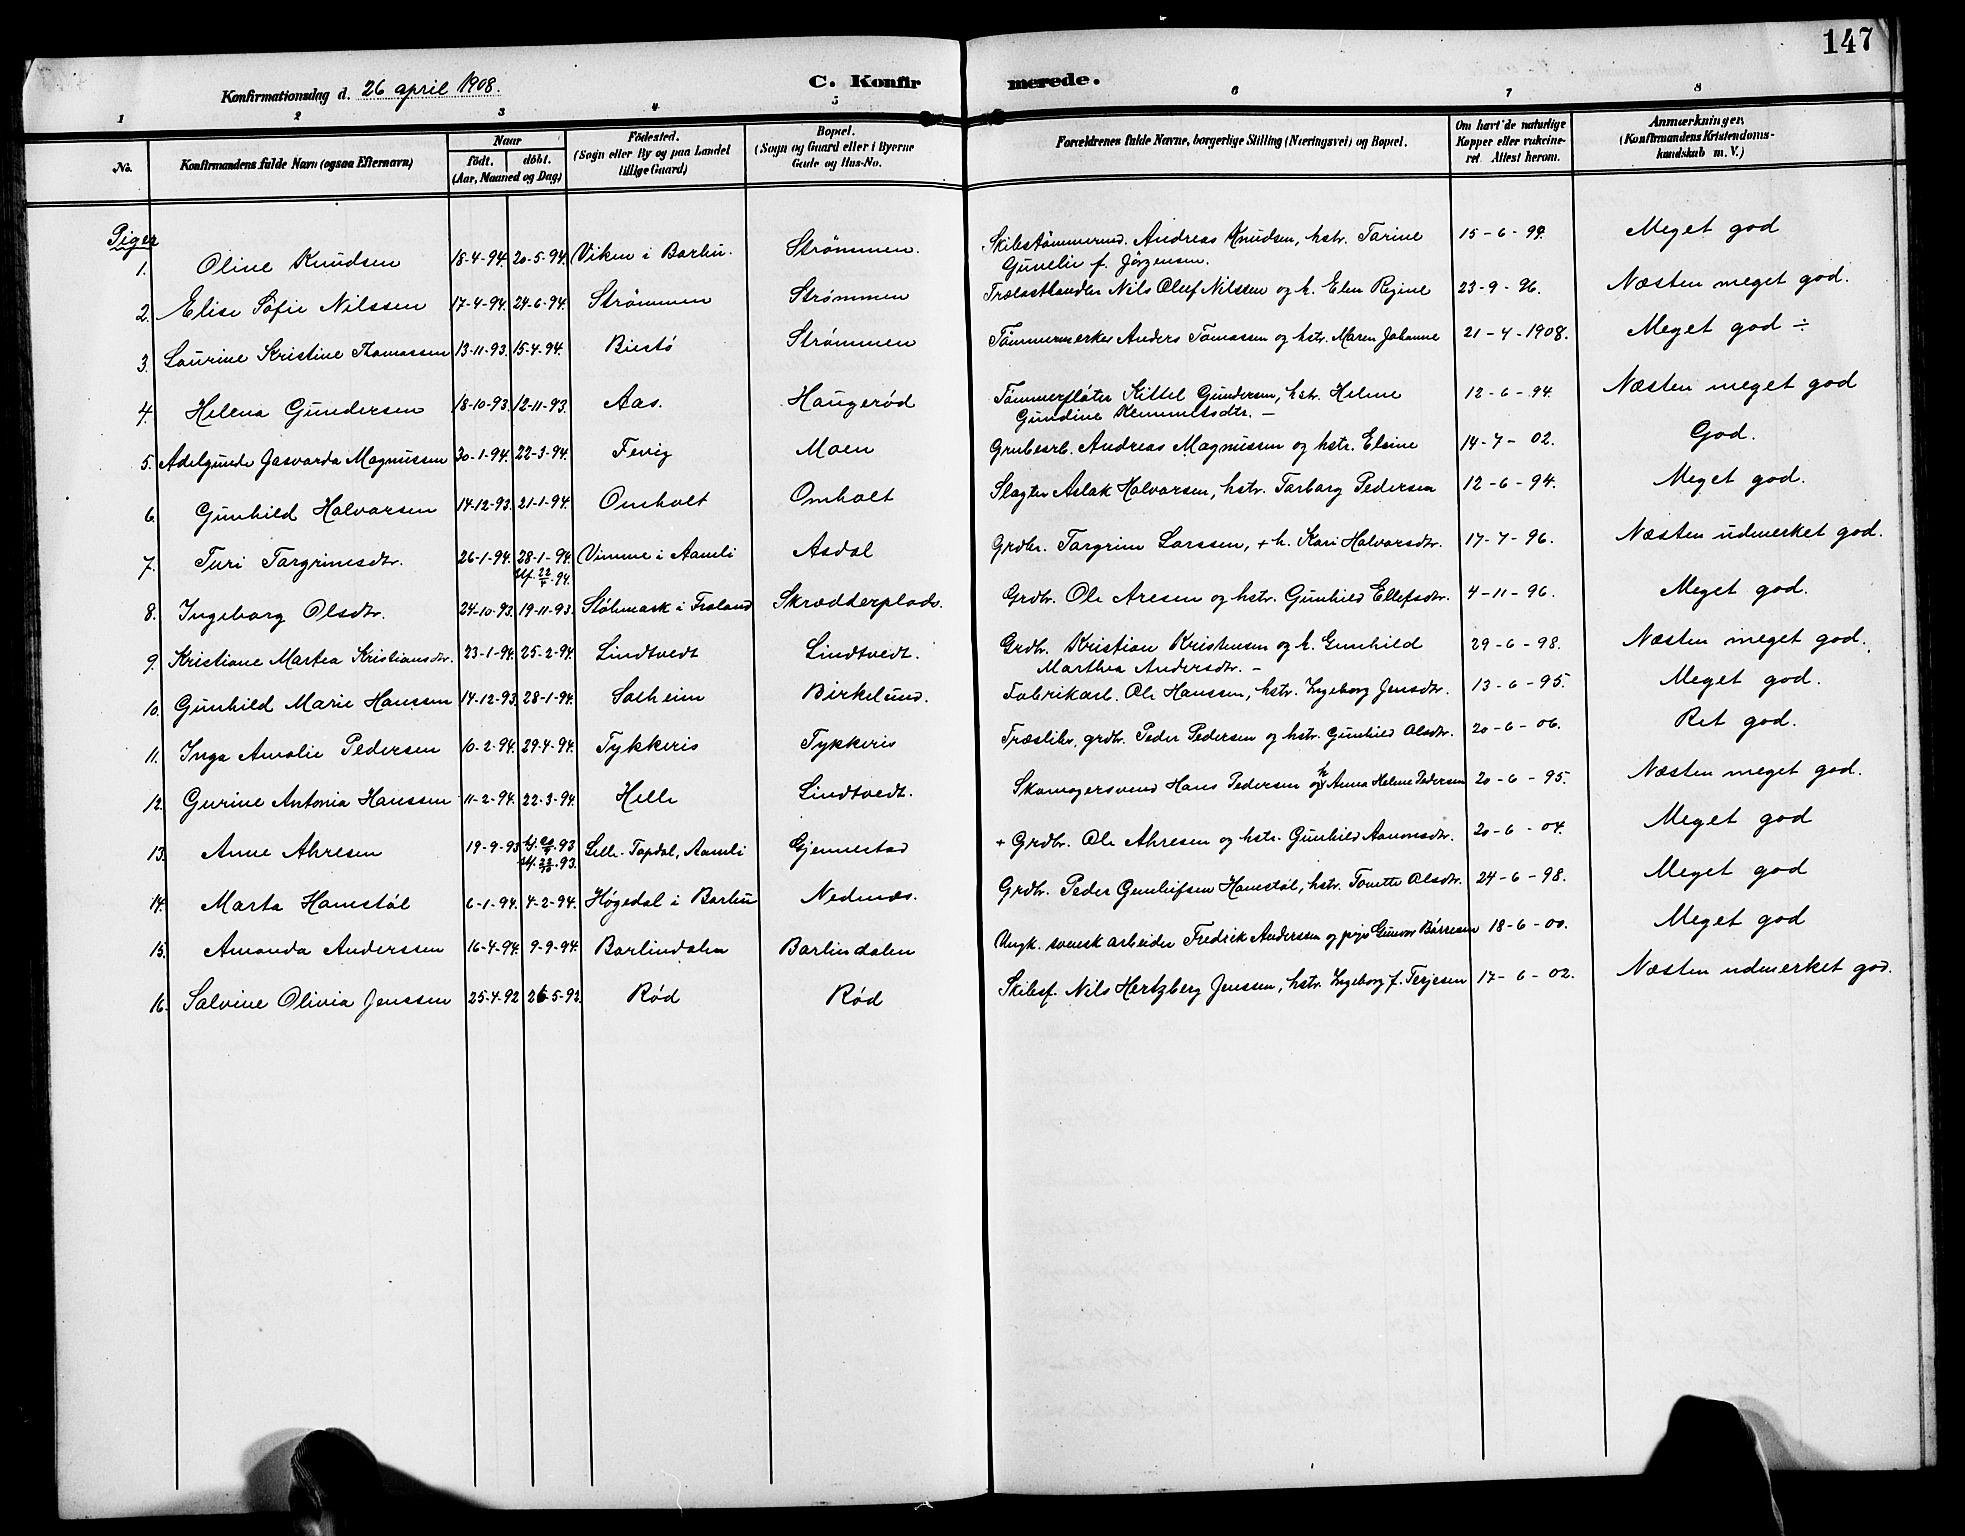 147
Konfirmationsdag d. 26 april 1908.
C. Konfirmerede.
1 2 3 4 5 6 7 8
No. Konfirmandens fulde Navn (ogsaa Efternavn) Naar født. døbt. (Aar, Maaned og Dag) Fødested. (Sogn eller By og paa Landet tillige Gaard) Bopæl. (Sogn og Gaard eller i Byerne Gade og Hus-No. Forældrenes fulde Navne, borgerlige Stilling (Næringsvei) og Bopæl. Om havt de naturlige Kopper eller vakcineret. Attest herom. Anmærkninger. (Konfirmandens Kristendomskundskab m. V.)
Piger
1. Oline Knudsen 18-4-94. 20-5-94. Viken i Barbu. Strømmen. Skibstømmermd. Andreas Knudsen, hstr. Tarine 15-6-94. Meget god
Gunelie f. Jörgensen.
2. Elise Sofie Nilssen 17-4-94. 24-6-94. Strømmen Strømmen Trælasthandler Nils Oluf Nilssen og h. Elen Regine 23-9-96. Næsten meget god.
3. Laurine Kristine Thomassen 13-11-93. 15-4-94. Biestö Strømmen Tømmermerker Anders Tomassen og hstr. Maren Johanne 21-4-1908. Meget god ÷
4. Helena Gundersen 18-10-93. 12-11-93. Aas. Haugerød Tømmerfløter Kittel Gundersen, hstr. Helene 12-6-94. Næsten meget god
Gundine Kemmeltsdtr. —
5. Adelgunde Jasvarda Magnussen 30-1-94. 22-3-94. Fevig Moen Grubearb. Andreas Magnussen og hstr. Elaine 14-7-02. God.
6. Gunhild Halvorsen 14-12-93. 21-1-94. Omholt Omholt Slagter Aslak Halvorsen, hstr. Tarbørg Pedersen 12-6-94. Meget god.
7. Turi Targrimsdtr. 26-1-94. 28-1-94 Vimme i Aamli Asdal Grdbr. Targrim Larssen, + h. Kari Halvorsdtr. 17-7-96. Næsten udmerket god.
8. Ingeborg Olsdtr. 24-10-93. 19-11-93. Stølemark i Froland Skrædderplads. Grdbr. Ole Aresen og hstr. Gunhild Ellefsdtr. 4-11-96. Meget god.
9. Kristiane Martea Kristiansdtr. 23-1-94. 25-2-94. Lindtvedt Lindtvedt. Grdbr. Kristian Kristensen og h. Gunhild 29-6-98. Næsten meget god.
Marthea Andersdtr. —
10. Gunhild Marie Hanssen 14-12-93. 28-1-94. Solheim Birkelund. Fabrikarb. Ole Hanssen, hstr. Ingeborg Jensdtr. 13-6-95. Meget god.
11. Inga Amalie Pedersen 10-2-94. 29-4-94. Tykkeris Tykkeris Træslibr. grdbr. Peder Pedersen og hstr. Gunhild Olsdtr. 20-6-06. Ret god.
12. Gurine Antonia Hanssen 11-2-94. 22-3-94. Helle Lindtvedt. Skomagersvend Hans Pedersen og h. Anna Helene Pedersen 20-6-95. Næsten meget god.
13. Anne Ahresen 19-9-93 Lille-Topdal, Aamli Gjennestad + Grdbr. Ole Ahresen og hstr. Gunhild Aanonsdtr. 20-6-04. Meget god
14. Marta Hamstøl 6-1-94. 4-2-94. Høgedal i Barbu Nednæs. Grdbr. Peder Gunleifsen Hamstøl, hstr. Tonette Olsdtr. 24-6-98. Meget god
15. Amanda Anderssen 16-4-94. 9-9-94. Barlindalen Barlindalen Ungk. svensk arbeider Fredrik Anderssen og pige Gunvor Børresen 18-6-00. Meget god
16. Salvine Olivia Jenssen 25-4-92 26-5-92. Rød Rød Skibsf. Nils Hertzberg Jenssen, hstr. Ingeborg f. Terjesen 17-6-02. Næsten udmerket god.